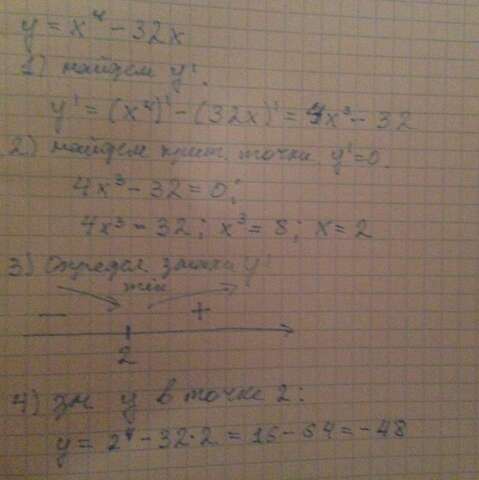 y = x⁴ - 32x
1) найдем y'.
y' = (x⁴)' - (32x)' = 4x³ - 32
2) найдем крит. точки y'=0.
4x³ - 32 = 0;
4x³ = 32; x³ = 8; x = 2
3) Определ. знаки y'
min
— +
2
4) зн y в точке 2:
y = 2⁴ - 32·2 = 16 - 64 = -48